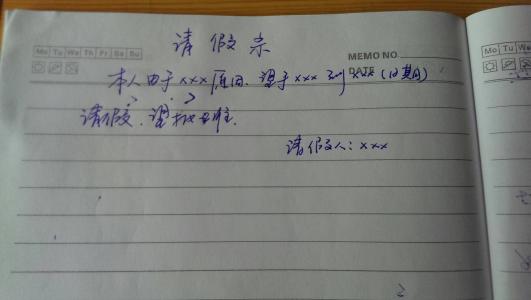 请假条
Mo Tu We Th Fr Sa Su
MEMO NO.
DATE
本人由于xxx原因,望于xxx到xxx(日期)
请假,望批准.
请假人:xxx
Mo Tu